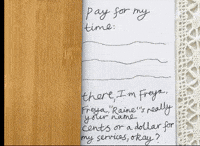 pay for my
time:
there, I'm Freya.
Freya. "Raine"s really
your name.
cents or a dollar for
my services, okay?